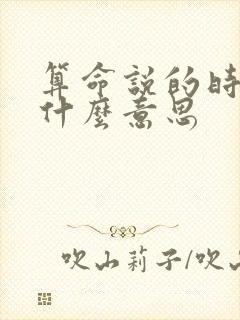 算命說的時
什麼意思
吹山莉子/吹山